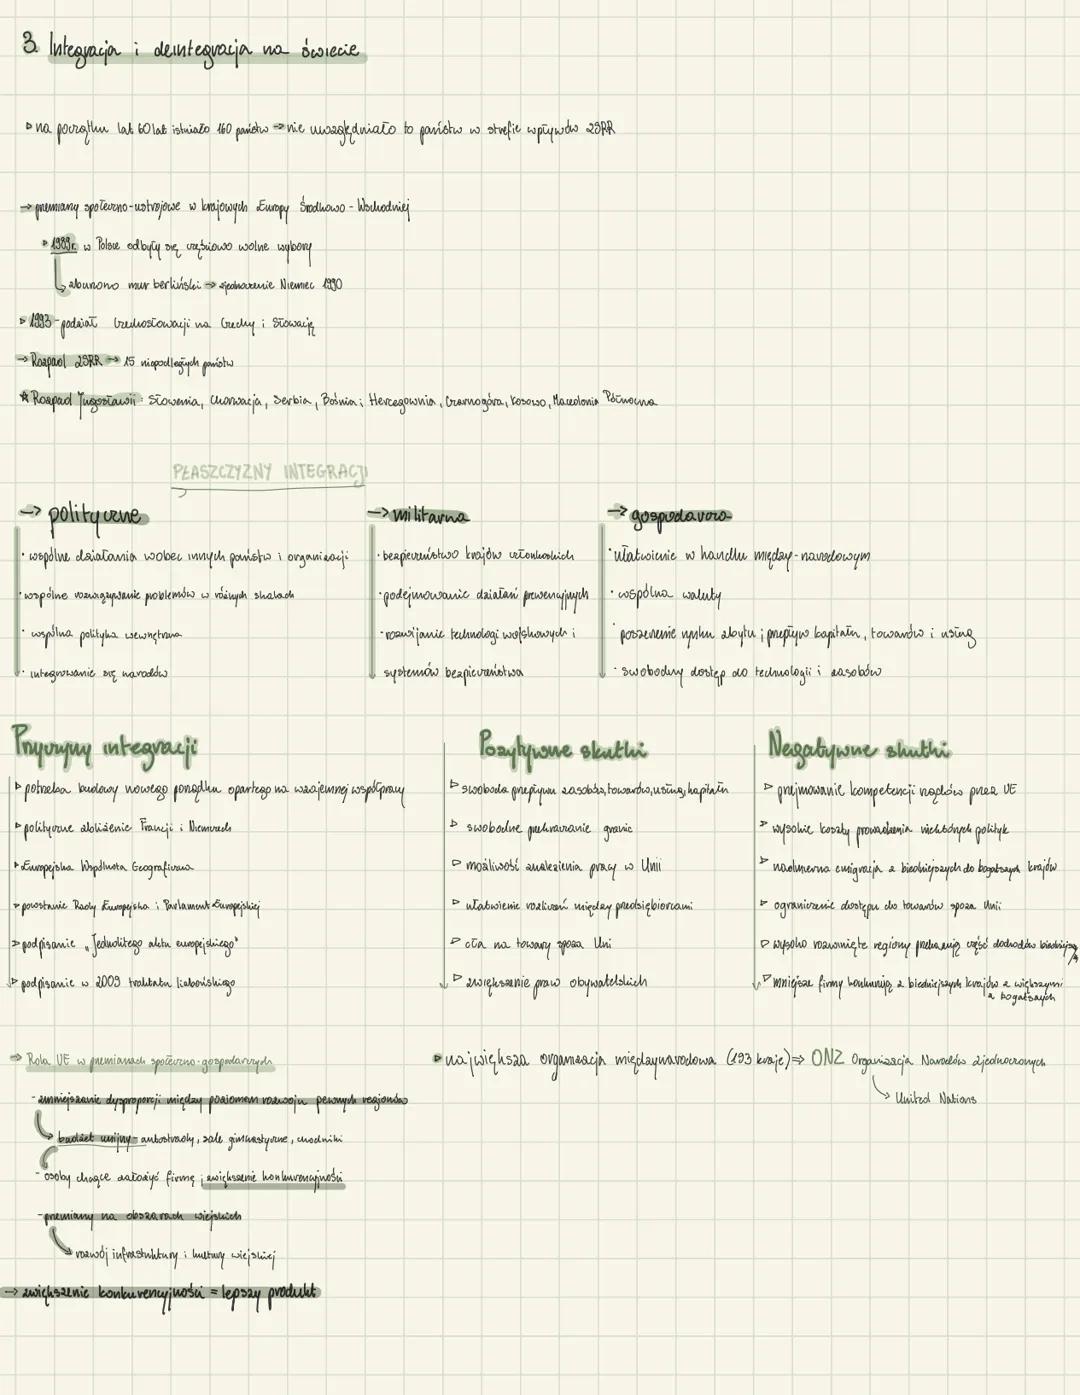 3. Integracja i deintegracja na świecie
▹ na początku lat 60 lat istniało 160 państw → nie uwzględniało to państw w strefie wpływów ZSRR
→ przemiany społeczno-ustrojowe w krajowych Europy Środkowo-Wschodniej
▹ 1989r. w Polsce odbyły się częściowo wolne wybory
↳ zburzono mur berliński → zjednoczenie Niemiec 1990
▹ 1993 - podział Czechosłowacji na Czechy i Słowację
→ Rozpad ZSRR → 15 niepodległych państw
☆ Rozpad Jugosławii: Słowenia, Chorwacja, Serbia, Bośnia i Hercegownia, Czarnogóra, Kosowo, Macedonia Północna
PŁASZCZYZNY INTEGRACJI
→ polityczne
· wspólne działania wobec innych państw i organizacji
· wspólne rozwiązywanie problemów w różnych skalach
· wspólna polityka wewnętrzna
· integrowanie się narodów
→ militarna
· bezpieczeństwo krajów członkoskich
· podejmowanie działań prewencyjnych
· rozwijanie technologi wojskowych i
systemów bezpieczeństwa
→ gospodarcza
· ułatwienie w handlu między-narodowym
· wspólna waluty
· poszerzenie rynku zbytu; przepływ kapitału, towarów i usług
· swobodny dostęp do technologii i zasobów
Przyczyny integracji
▹ potrzeba budowy nowego porządku opartego na wzajemnej współpracy
▹ polityczne zbliżenie Francji i Niemczech
▹ Europejska Wspólnota Geograficzna
▹ powstanie Rady Europejska i Parlament Europejskiej
▹ podpisanie „Jednolitego aktu europejskiego"
▹ podpisanie w 2009 traktatu lizbońskiego
Pozytywne skutki
▹ swoboda przepływu zasobów, towarów, usług, kapitału
▹ swobodne przekraczanie granic
▹ możliwość znalezienia pracy w Unii
▹ ułatwienie rozliczeń między przedsiębiorcami
▹ cła na towary spoza Uni
▹ zwiększenie praw obywatelskich
Negatywne skutki
▹ przejmowanie kompetencji rządów przez UE
▹ wysokie koszty prowadzenia niektórych polityk
▹ nadmierna emigracja z biedniejszych do bogatszych krajów
▹ ograniczenie dostępu do towarów spoza Unii
▹ wysoko rozwinięte regiony przekazują część dochodów
▹ mniejsze firmy konkurują z biedniejszych krajów z większymi
z bogatszych
→ Rola UE w przemianach społeczno-gospodarczych
- zmniejszanie dysproporcji między poziomem rozwoju pewnych regionów
↳ budżet unijny - autostrady, sale gimnastyczne, chodniki
- osoby chcące założyć firmę; zwiększenie konkurencyjności
- przemiany na obszarach wiejskich
↳ rozwój infrastruktury i kultury wiejskiej
→ zwiększenie konkurencyjności = lepszy produkt
▹ największa organizacja międzynarodowa (193 kraje) ⇒ ONZ Organizacja Narodów Zjednoczonych
↳ United Nations